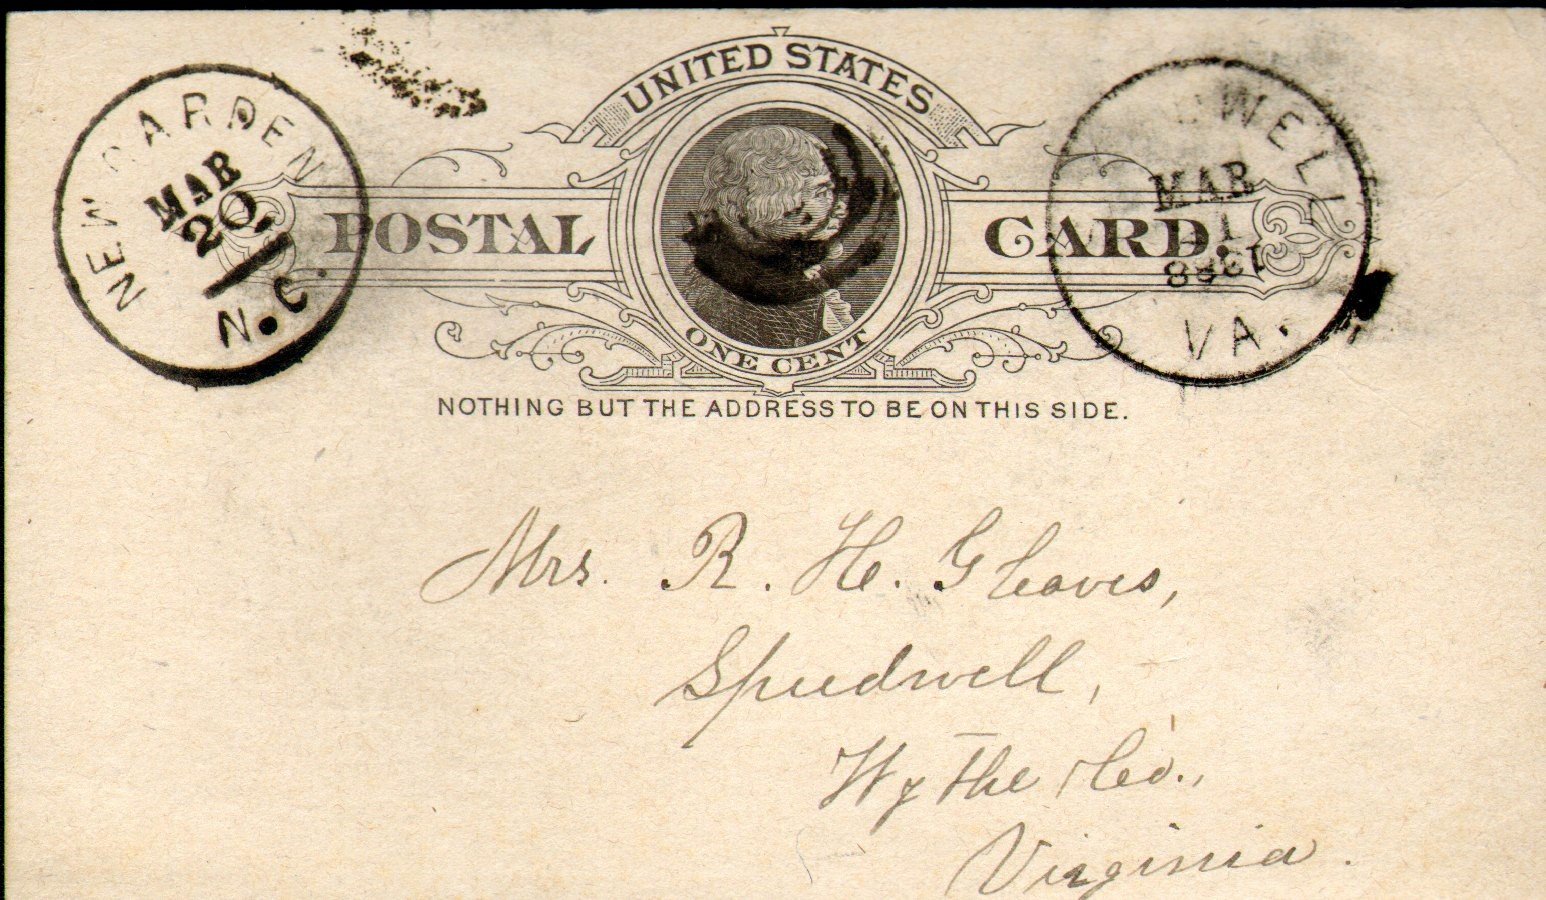 UNITED STATES
POSTAL CARD.
ONE CENT
NOTHING BUT THE ADDRESS TO BE ON THIS SIDE.
NEW GARDEN
MAR
20
N.C.
MAR
VA.
Mrs. R. H. Gleaves,
Speedwell,
Wythe Co.,
Virginia.